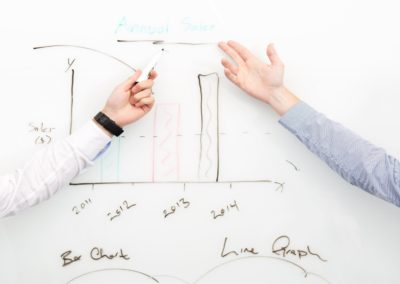 Annual Sales
Y
Sales
($)
X
2011 2012 2013 2014
Bar Chart Line Graph